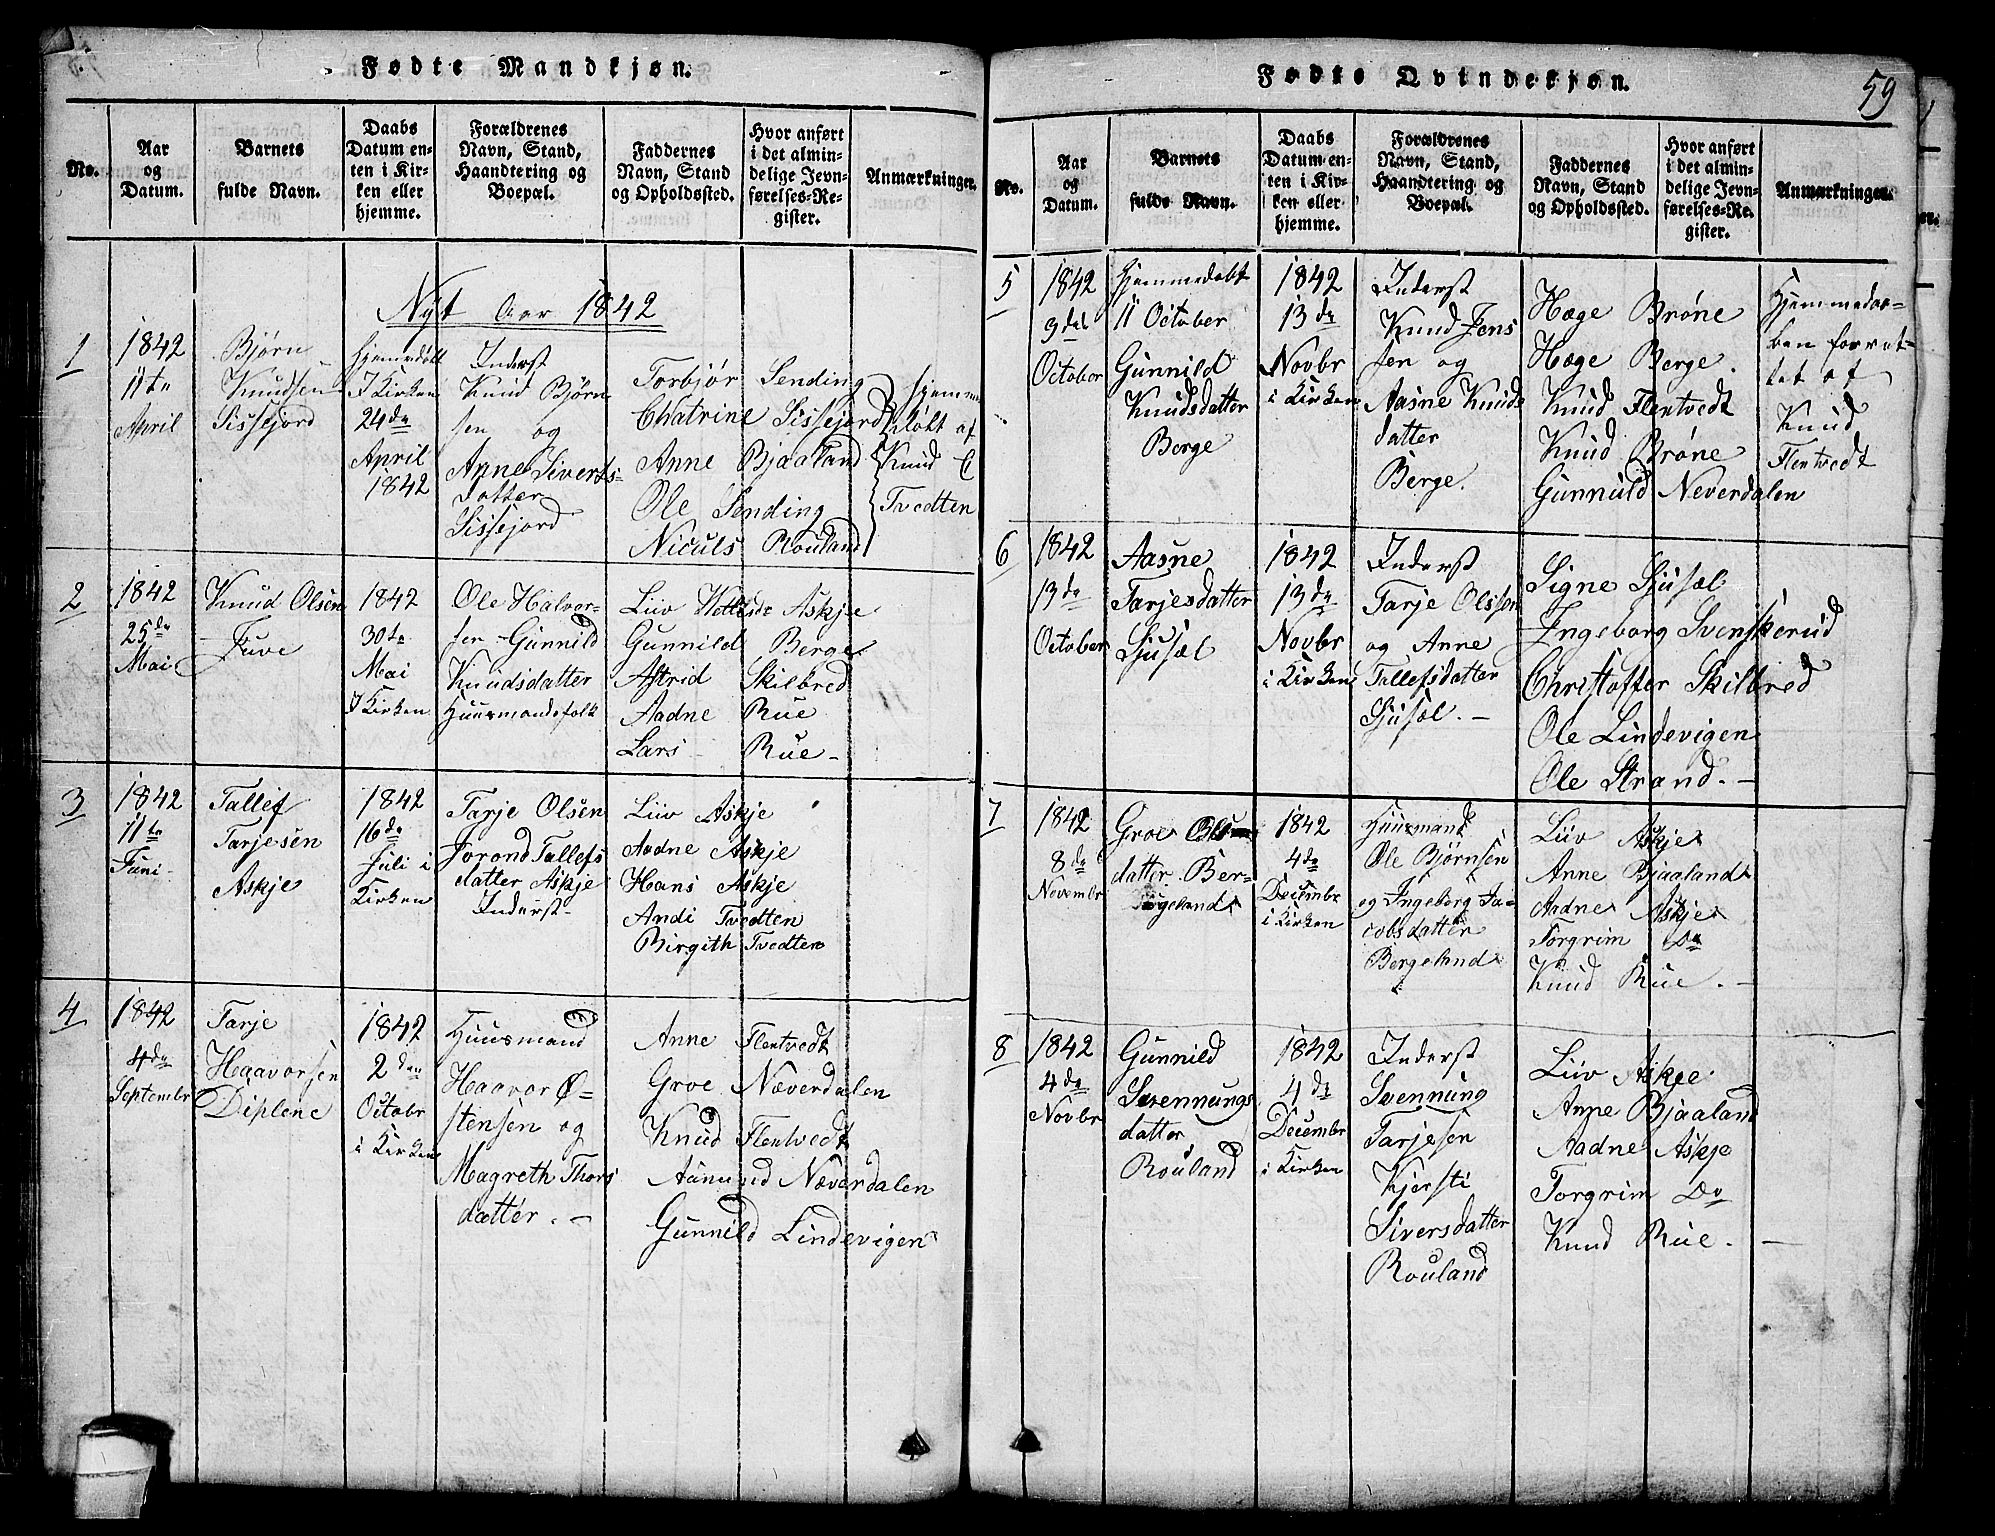 Fødte Mandkjøn.
No.
Aar
og
Datum.
Barnets
fulde Navn.
Daabs
Datum en-
ten i Kir-
ken eller
hjemme.
Forældrenes
Navn, Stand,
Haandtering og
Boepæl.
Faddernes
Navn, Stand
og Opholdssted.
Hvor anført
i det almin-
delige Jevn-
førelses-Re-
gister.
Anmærkninger.
Nyt Aar 1842
1
1842
11te
April
Bjørn
Knudsen
Sissejord
Hjemmedøbt
I Kirken
24de
April
1842
Inderst
Knud Bjørn
sen og
Anne Siverts-
datter
Sissejord
Torbjør Sending
Chatrine Sissejord
Anne Bjaaland
Ole Sending
Niculs Rouland
Hjemme
døbt af
Knud
Tvedten
2
1842
25de
Mai
Knud Olsen
Juve
1842
30te
Mai
I Kirken
Ole Halvor-
sen - Gunnild
Knudsdatter
Huusmandsfolk
Liiv Askje
Gunnild Berge
Astrid Skilbred
Aadne Rue
Lars Rue
3
1842
11te
Juni
Tallef
Tarjesen
Askje
1842
16de
Juli i
Kirken
Tarje Olsen
Jorond Tallefs
datter Askje
Inderst
Liiv Askje
Aadne Askje
Hans Askje
Andi Tvedten
Birgith Tvedten
4
1842
4de
Septembr
Tarje
Haavorsen
Diplene
1842
2den
Octobr
i Kirken
Huusmand
Haavor Ø-
stensen og
Magreth Thors
datter. -
Anne Flentvedt
Groe Næverdalen
Knud Flentvedt
Aanund Næverdalen
Gunnild Lindevigen
Fødte Qvindekjøn.
59
No.
Aar
og
Datum.
Barnets
fulde Navn.
Daabs
Datum en-
ten i Kir-
ken eller
hjemme.
Forældrenes
Navn, Stand,
Haandtering og
Boepæl.
Faddernes
Navn, Stand
og Opholdssted.
Hvor anført
i det almin-
delige Jevn-
førelses-Re-
gister.
Anmærkninger.
5
1842
October
Hjemmedøbt
11 October
Gunnild
Knudsdatter
Berge
1842
13de
Novbr
i Kirken
Inderst
Knud Jens
sen og
Aasne Knuds
datter
Berge.
Hæge Brøne
Hæge Berge.
Knud Flentvedt
Knud Brøne
Gunnuld Neverdalen
Hjemmedaa-
ben forret-
tet af
Knud
Flentvedt
6
1842
13de
October
Aasne
Tarjesdatter
Sjusæl
1842
13de
Novbr
i Kirken
Inderst
Tarje Olssen
og Anne
Tallefsdatter
Sjusæl. -
Signe Sjusæl
Ingeborg Svenskerud
Christoffer Skilbred
Ole Lindevigen
Ole Strand. -
7
1842
8de
Novembr
Groe
datter Ber-
geland
1842
4de
Decembr
i Kirken
Huusmand
Ole Bjørnsen
og Ingeborg Ja-
cobsdatter
Bergeland
Liiv Askje
Anne Bjaaland
Aadne Askje
Torgrim Do
Knud Rue. -
8
1842
4de
Novbr
Gunnild
Svennungs
datter
Rouland
1842
4de
Decembr
i Kirken
Inderst
Svennung
Tarjesen
Kjersti
Siversdatter
Rouland
Liiv Askje
Anne Bjaaland
Aadne Askje
Torgrim Do
Knud Rue. -